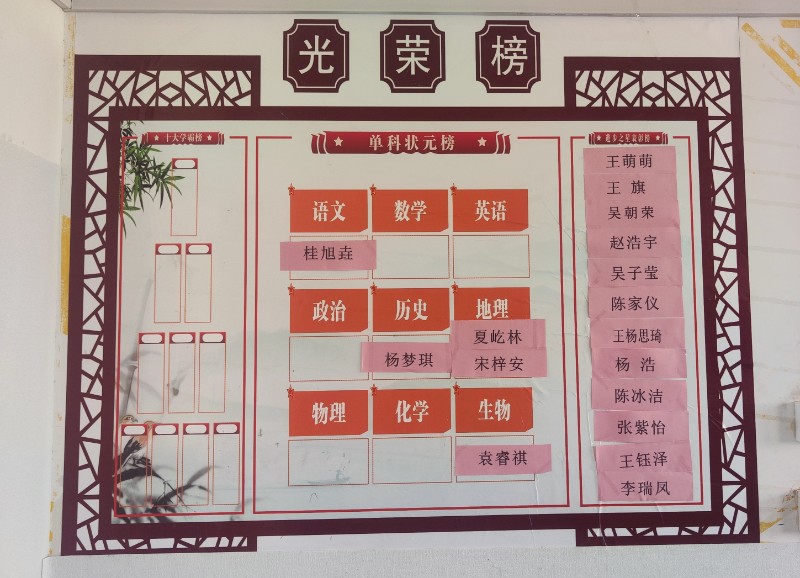 光荣榜
十大学霸榜
单科状元榜
进步之星表彰榜
语文 数学 英语
桂旭垚
政治 历史 地理
杨梦琪
夏屹林
宋梓安
物理 化学 生物
袁睿祺
王萌萌
王 旗
吴朝荣
赵浩宇
吴子莹
陈家仪
王杨思琦
杨 浩
陈冰洁
张紫怡
王钰泽
李瑞凤